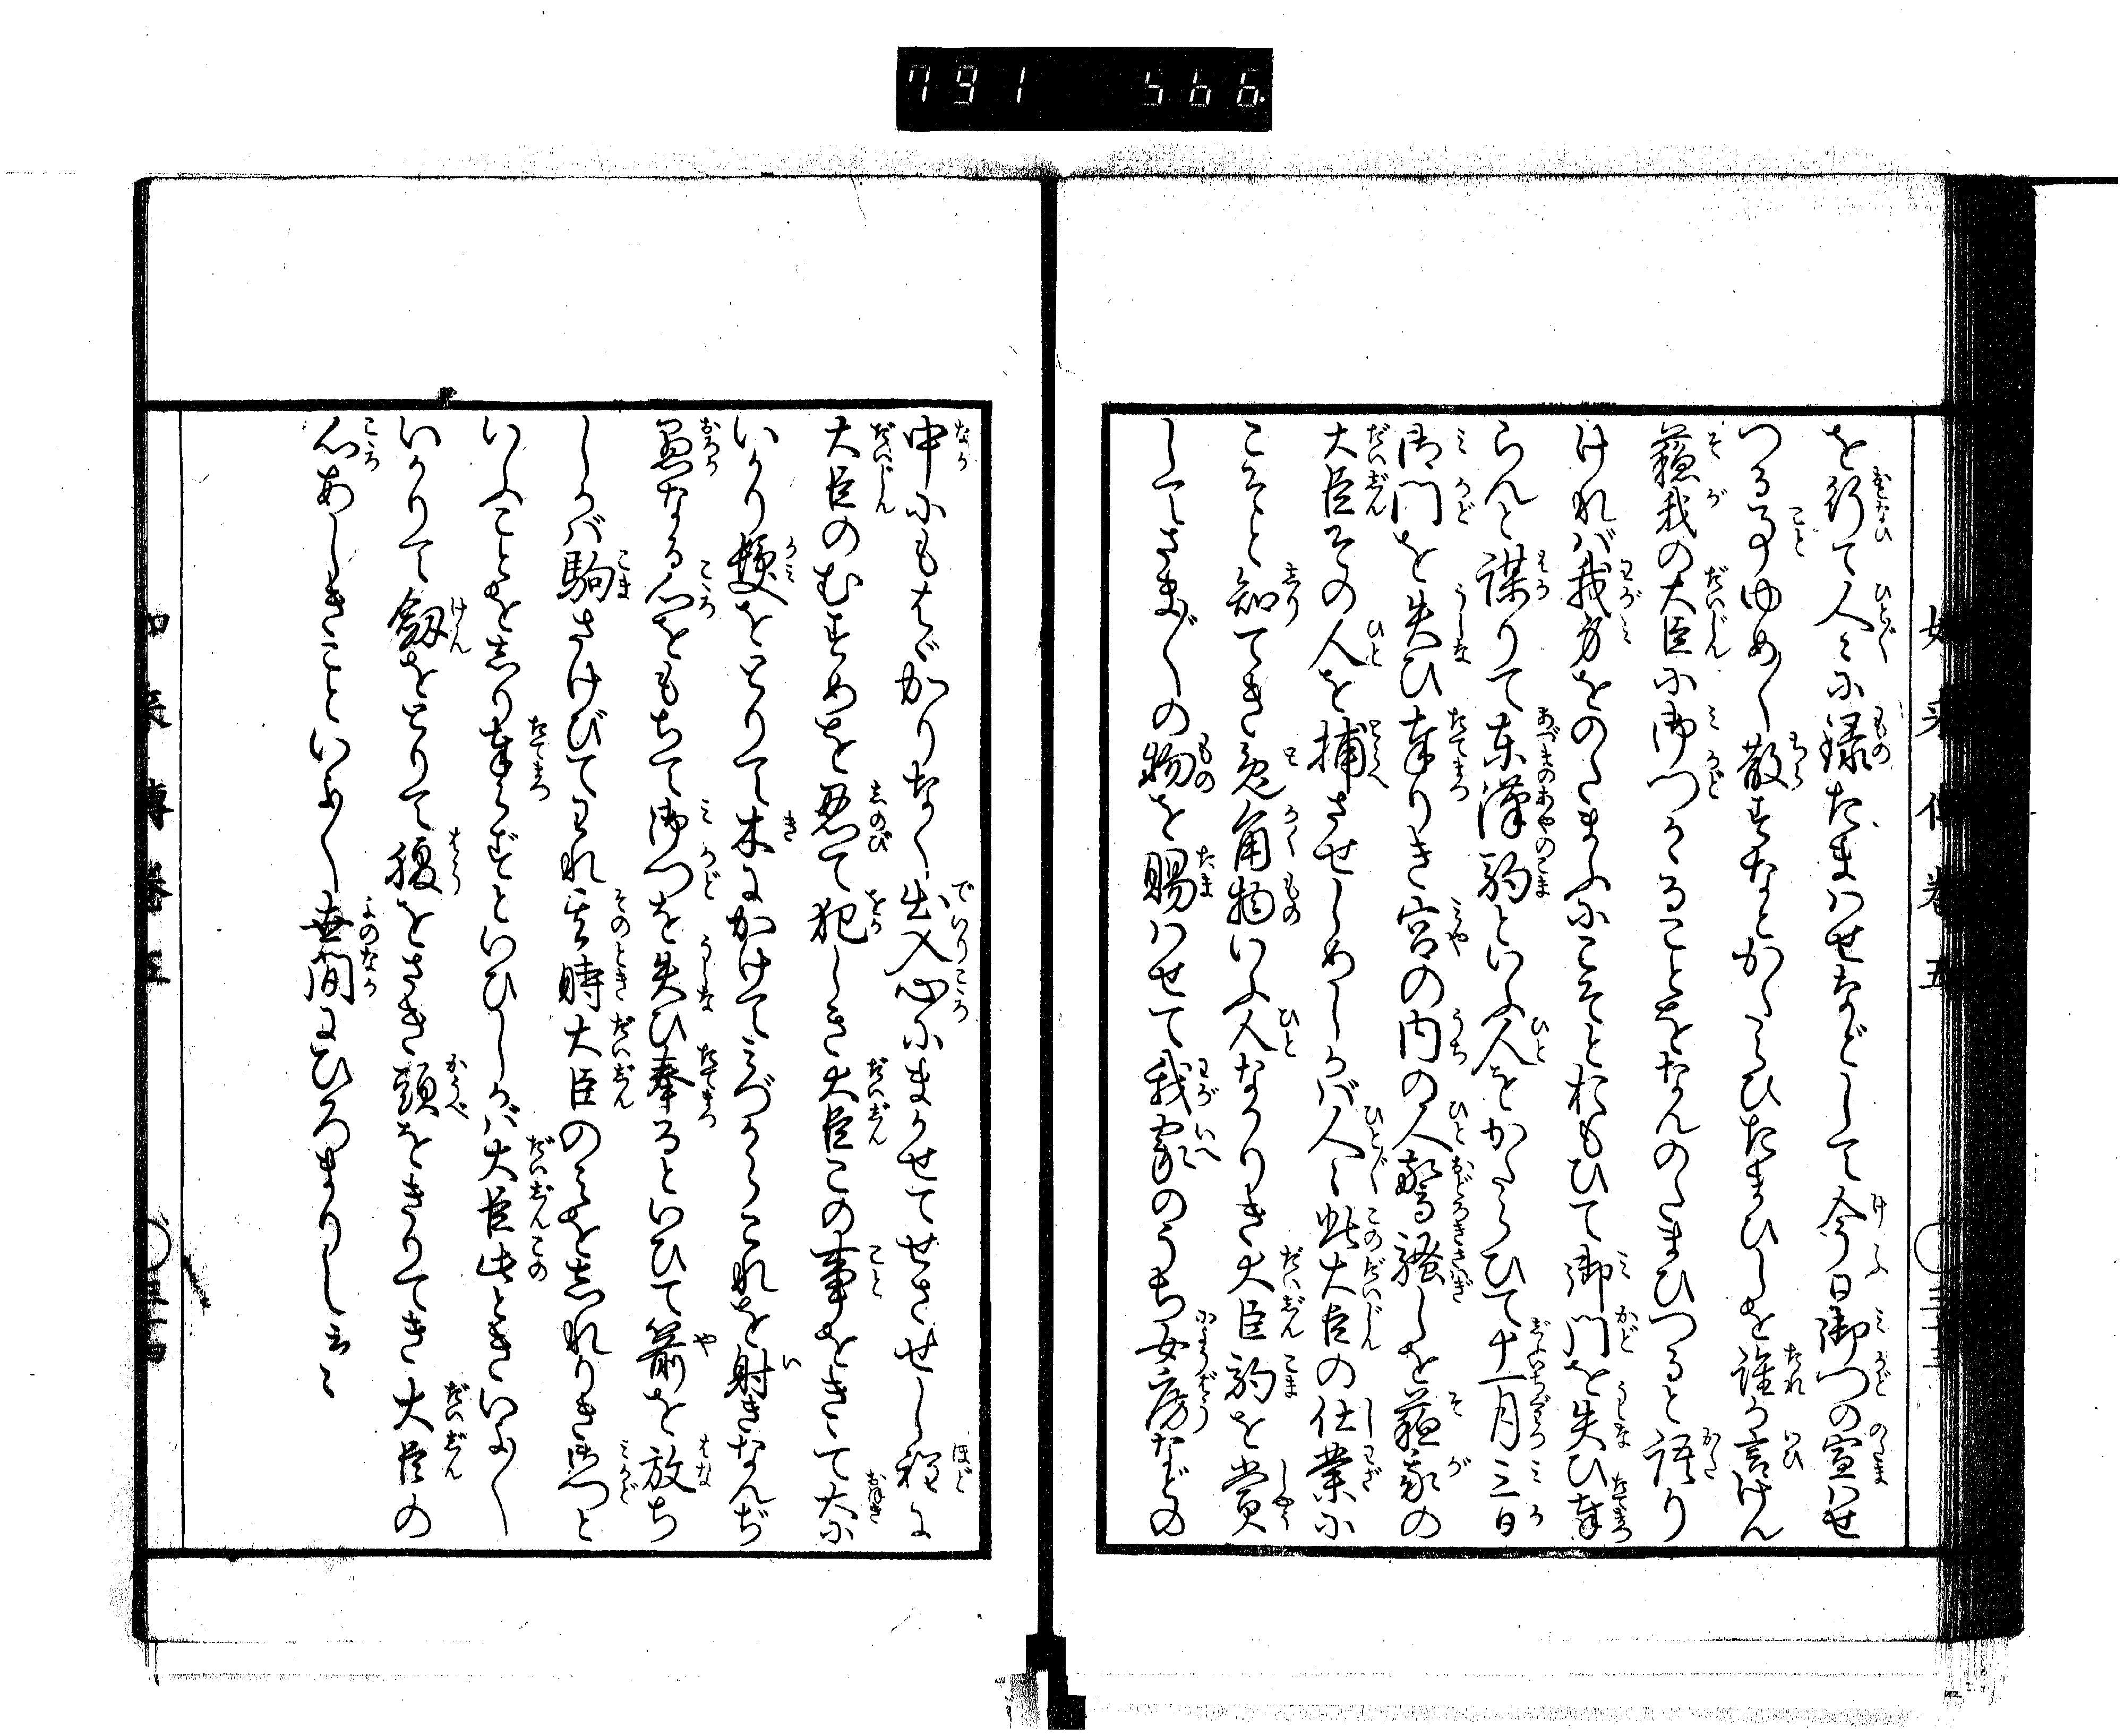 791 566
如来伝巻五 ○三十三
を行て人々に禄たまはせなどして今日御門の宣はせ
つる事ゆめ〳〵散すなとかたらひたまひしを誰か言けん
蘓我の大臣に御門かゝることをなんのたまひつると語り
けれバ我身をのたまふにこそとおもひて御門を失ひ奉
らんと謀りて東漢駒といふ人をかたらひて十一月三日
御門を失ひ奉りき宮の内の人驚騒しを蘓我の
大臣その人を捕させしめしかバ人々此大臣の仕業に
こそと知てき兎角物いふ人なかりき大臣駒を賞
してさま〴〵の物を賜はせて我家のうち女房などの
中にもはゞかりなく出入心にまかせてせさせし程に
大臣のむすめを忍て犯しき大臣この事をきゝて大に
いかり髪をとりて木にかけてみづからこれを射きなんぢ
愚なる心をもちて御門を失ひ奉るといひて箭を放ち
しかバ駒さけびてわれ其時大臣のみを志れりき御門と
いふことを志り奉らずといひしかバ大臣此ときいよ〳〵
いかりて劔をとりて腹をさき頭をきりてき大臣の
心あしきこといよ〳〵世間にひろまりしと云々
如来伝巻五 ○三十四